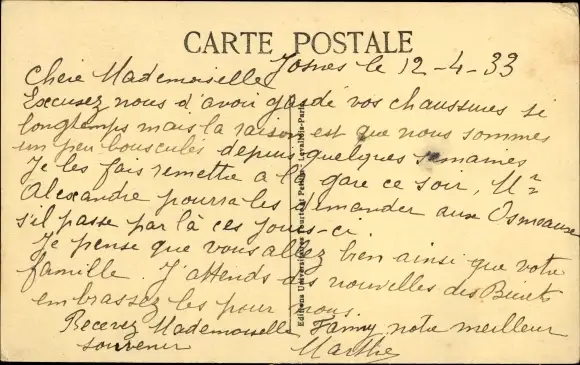 CARTE POSTALE
Josnes le 12-4-33
Chère Mademoiselle
Excusez nous d'avoir gardé vos chaussures si
longtemps mais la raison est que nous sommes
un peu bousculés depuis quelques semaines
Je les fais remettre à la gare ce soir, Mr
Alexandre pourra les demander aux Ormeaux
s'il passe par là ces jours-ci.
Je pense que vous allez bien ainsi que votre
famille. J'attends des nouvelles des
embrassez les pour nous.
Recevez Mademoiselle Fanny notre meilleur
souvenir Marthe
Editions Universitaires Tourte et Petitin, Levallois-Paris